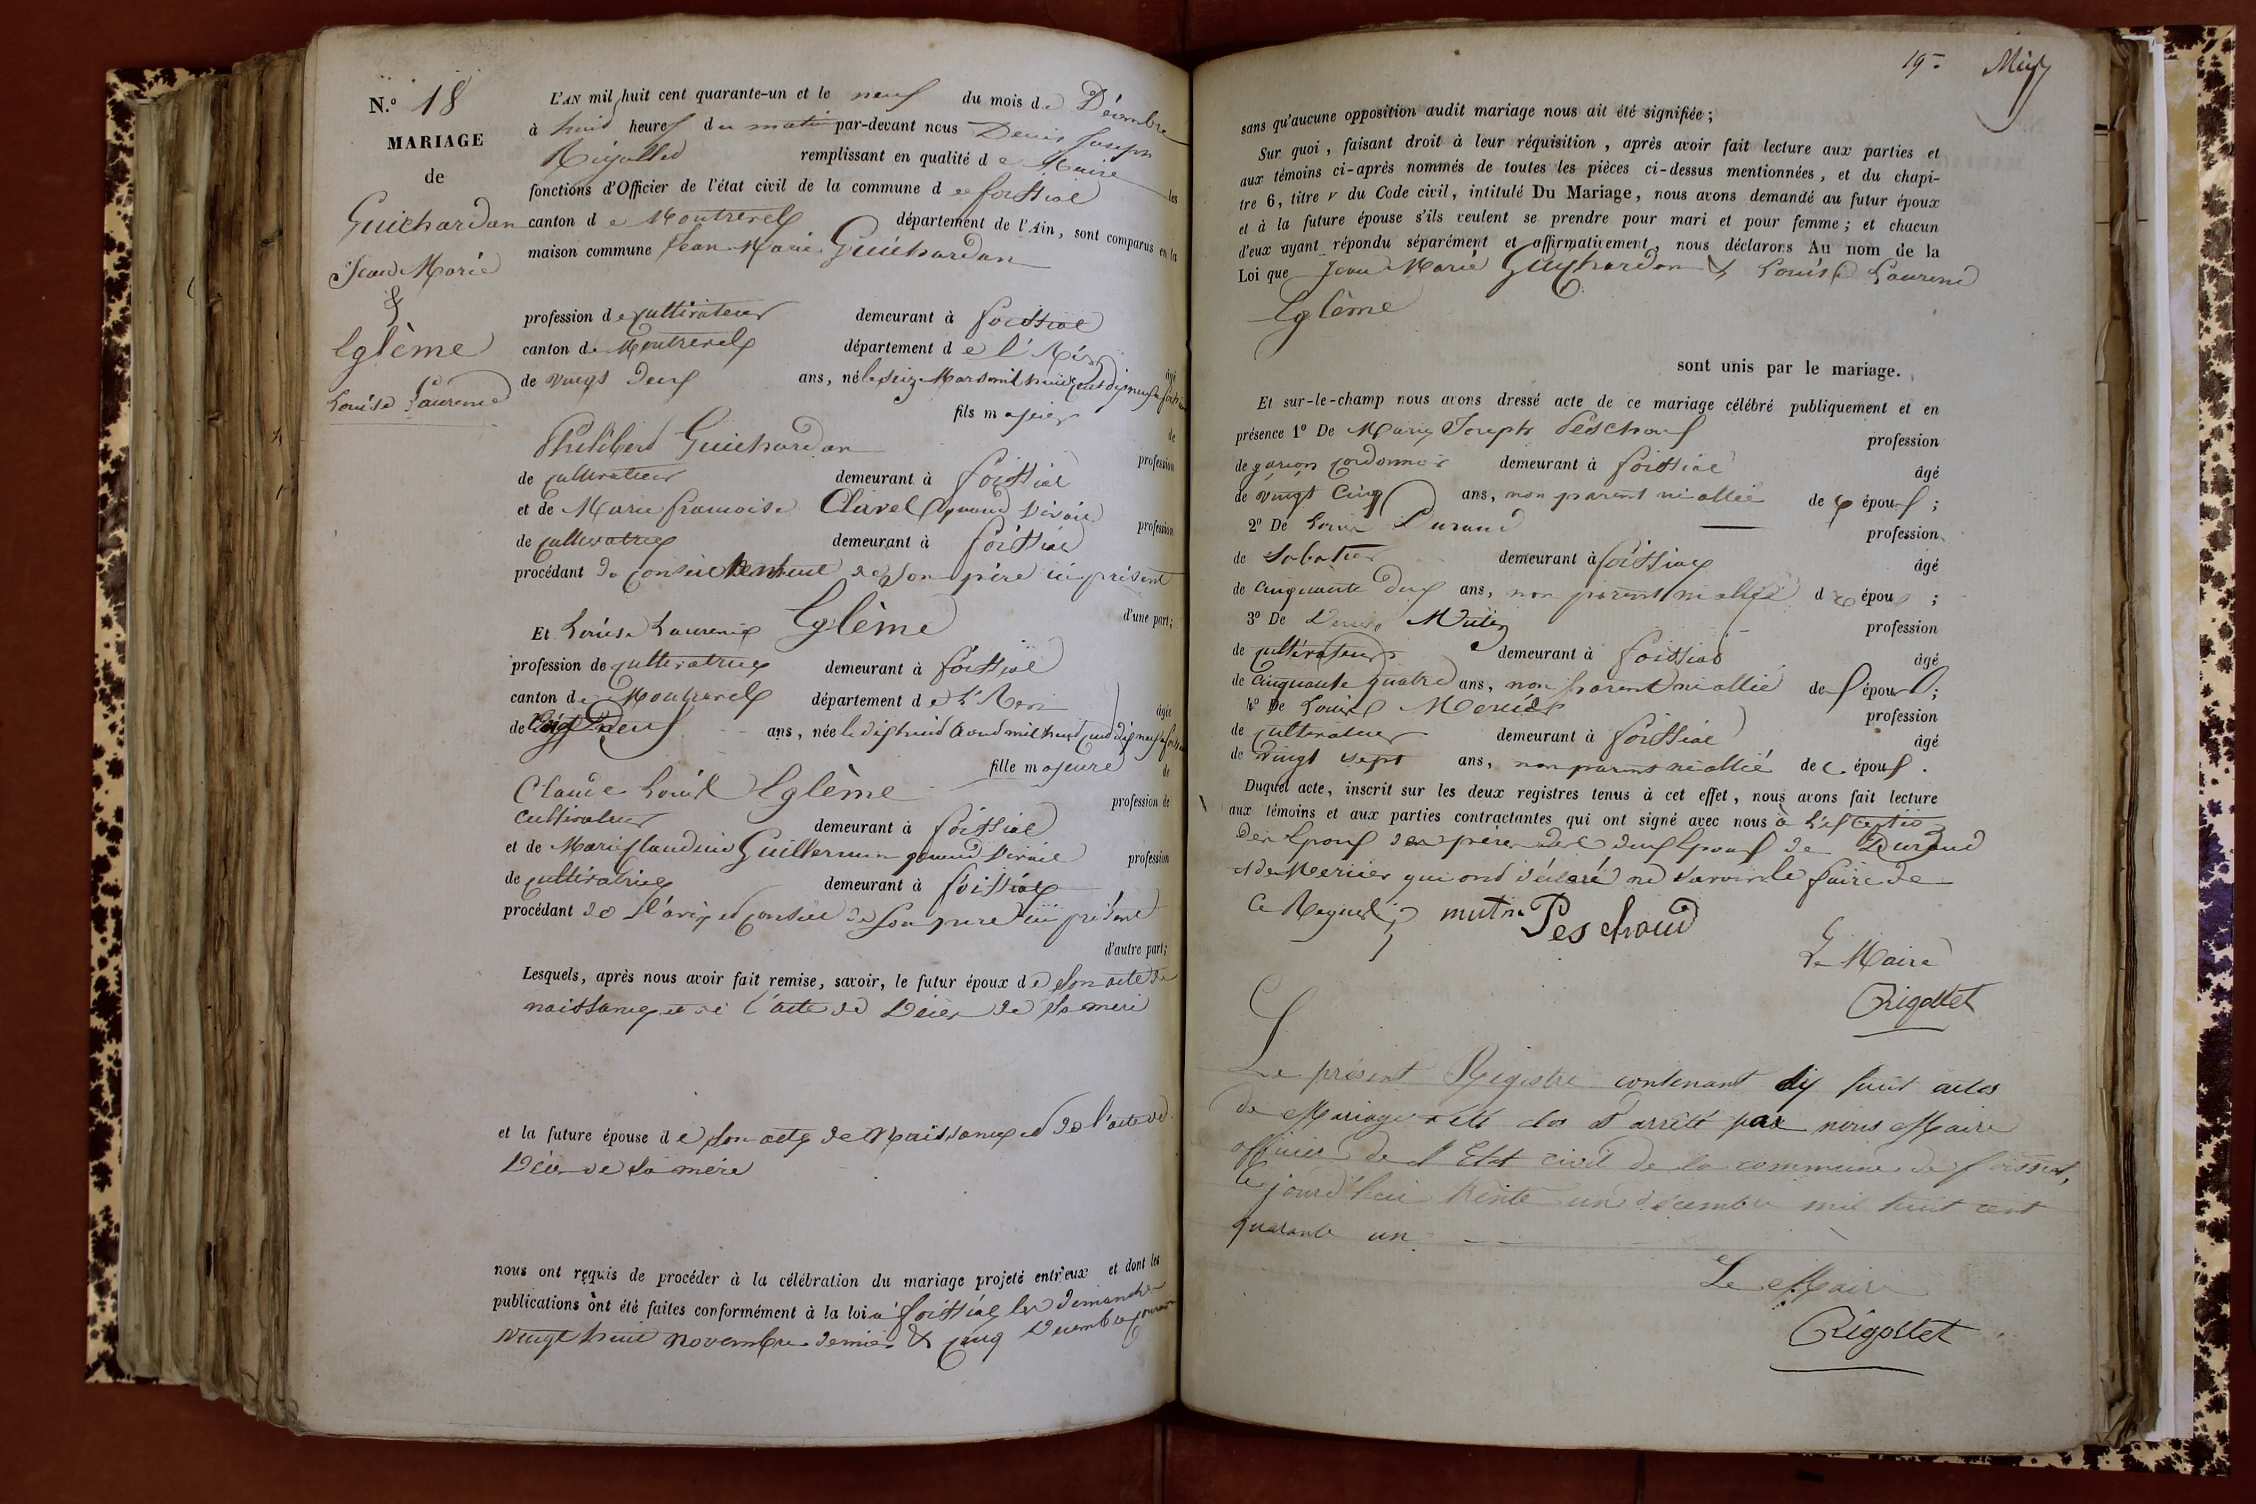 N.o 18
MARIAGE
de
Guichardan
Jean Marie
&
Eglème
Louise Laurence
L'AN mil huit cent quarante-un et le neuf du mois de Décembre
à huit heures du matin par-devant nous Denis Joseph
Rigollet remplissant en qualité de Maire les
fonctions d'Officier de l'état civil de la commune de foissiat
canton de Montrevel département de l'Ain, sont comparus en la
maison commune Jean Marie Guichardan
profession de cultivateur demeurant à foissiat
canton de Montrevel département de l'Ain âgé
de vingt deux ans, né le seize Mars mil huit cent dix neuf à foissiat
fils majeur de
Philibert Guichardan profession
de cultivateur demeurant à foissiat
et de Marie francoise Clavel quand vivait profession
de cultivatrice demeurant à foissiat
procédant du conseil de son père ici présent
d'une part;
Et Louise Laurence Eglème
profession de cultivatrice demeurant à foissiat
canton de Montrevel département de l'Ain âgée
de vingt deux ans, née le dix huit Aoud mil huit cent dix neuf à foissiat
fille majeure de
Claude Louis Eglème profession de
cultivateur demeurant à foissiat
et de Marie Claudine Guillermin quand vivait profession
de cultivatrice demeurant à foissiat
procédant de l'avis et conseil de son père ici présent
d'autre part;
Lesquels, après nous avoir fait remise, savoir, le futur époux de son acte de
naissance et de l'acte de Décès de sa mère
et la future épouse de son acte de Naissance et de l'acte de
Décès de sa mère
nous ont requis de procéder à la célébration du mariage projeté entr'eux et dont les
publications ont été faites conformément à la loi à foissiat les dimanches
vingt huit novembre dernier & cinq Décembre courant
19e
sans qu'aucune opposition audit mariage nous ait été signifiée;
Sur quoi, faisant droit à leur réquisition, après avoir fait lecture aux parties et
aux témoins ci-après nommés de toutes les pièces ci-dessus mentionnées, et du chapi-
tre 6, titre v du Code civil, intitulé Du Mariage, nous avons demandé au futur époux
et à la future épouse s'ils veulent se prendre pour mari et pour femme; et chacun
d'eux ayant répondu séparément et affirmativement, nous déclarons Au nom de la
Loi que Jean Marie Guichardon & Louise Laurence
Eglème
sont unis par le mariage.
Et sur-le-champ nous avons dressé acte de ce mariage célébré publiquement et en
présence 1o De Marie Joseph Peschoux profession
de garçon cordonnier demeurant à foissiat âgé
de vingt cinq ans, non parent ni allié des époux;
2o De Louis Durand profession
de Sabotier demeurant à foissiat âgé
de cinquante deux ans, non parent ni allié des époux;
3o De Denis Mutin profession
de cultivateur demeurant à foissiat âgé
de cinquante quatre ans, non parent ni allié des époux;
4o De Louis Mercier profession
de cultivateur demeurant à foissiat âgé
de vingt sept ans, non parent ni allié des époux.
Duquel acte, inscrit sur les deux registres tenus à cet effet, nous avons fait lecture
aux témoins et aux parties contractantes qui ont signé avec nous à l'exception
des Epoux des pères des deux Epoux de Durand
et de Mercier qui ond déclaré ne savoir le faire de
ce Requis mutin Peschoud
Le Maire
Rigollet
Le présent Registre contenant dix huit actes
de Mariage a été clos et arrêté par nous Maire
officier de l'Etat civil de la commune de foissiat,
Cejourd'hui trente un décembre mil huit cent
quarante un.
Le Maire
Rigollet